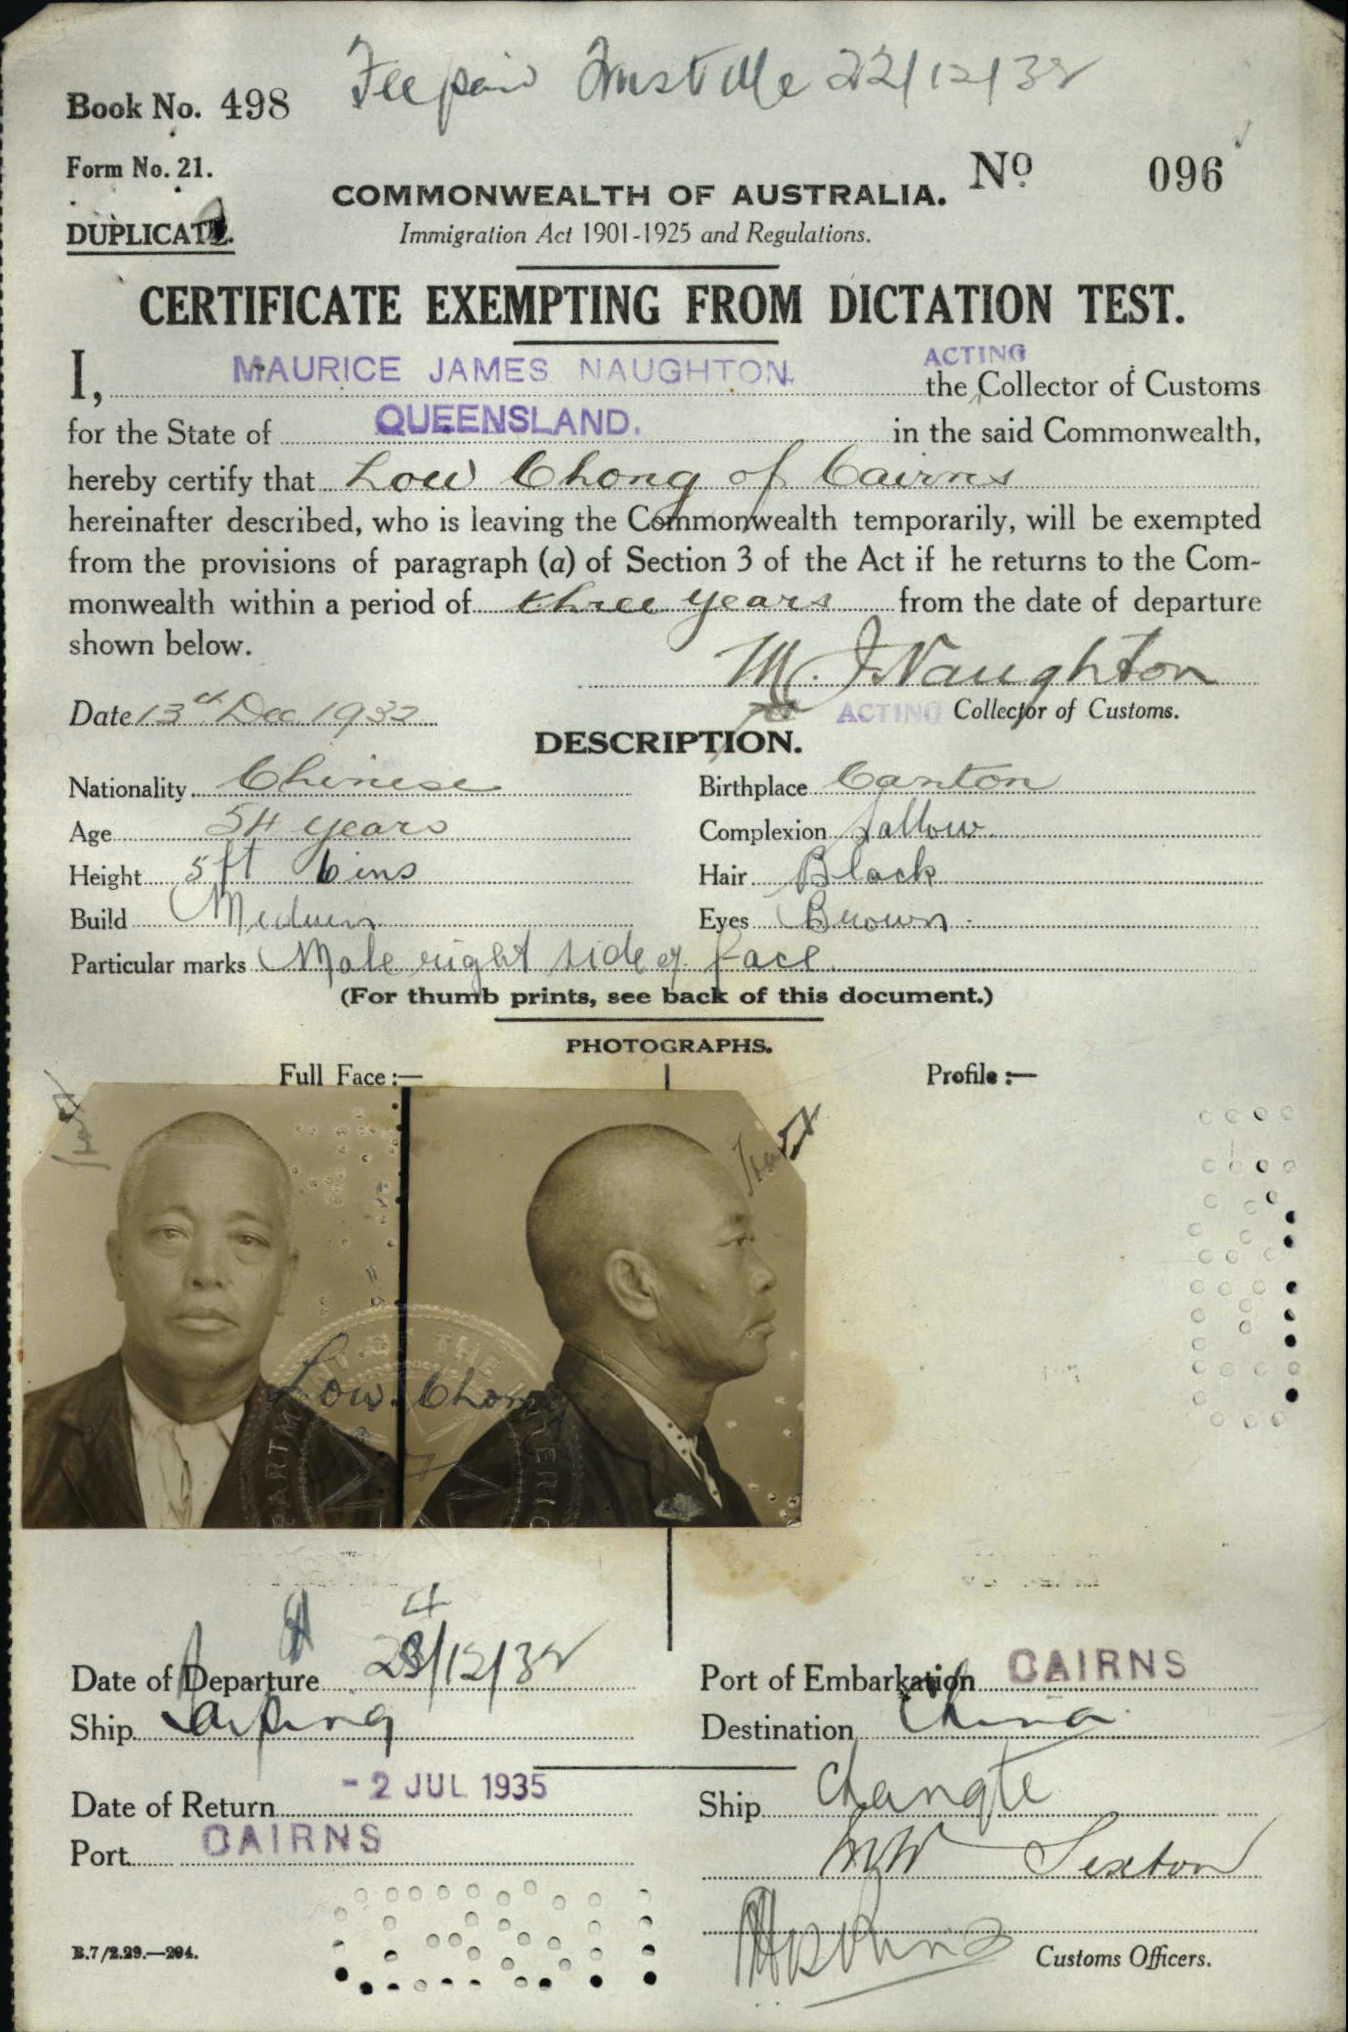 Fee paid 22/12/32
Book No. 498
Form No. 21.
No 096
DUPLICATE.
COMMONWEALTH OF AUSTRALIA.
Immigration Act 1901-1925 and Regulations.
CERTIFICATE EXEMPTING FROM DICTATION TEST.
I, MAURICE JAMES NAUGHTON. the ACTING Collector of Customs
for the State of QUEENSLAND. in the said Commonwealth,
hereby certify that Low Chong of Cairns
hereinafter described, who is leaving the Commonwealth temporarily, will be exempted
from the provisions of paragraph (a) of Section 3 of the Act if he returns to the Com-
monwealth within a period of three years from the date of departure
shown below.
M. J. Naughton
Date 13th Dec 1932 ACTING Collector of Customs.
DESCRIPTION.
Nationality Chinese Birthplace Canton
Age 54 years Complexion Sallow.
Height 5 ft 6 ins Hair Black
Build Medium Eyes Brown.
Particular marks Mole right side of face.
(For thumb prints, see back of this document.)
PHOTOGRAPHS.
Full Face:— Profile:—
OF THE
Low. Chong
Date of Departure 24/12/32 Port of Embarkation CAIRNS
Ship Taiping Destination China
Date of Return -2 JUL 1935 Ship Changte
Port CAIRNS
Sexton
B.7/2.29.—204.
Customs Officers.